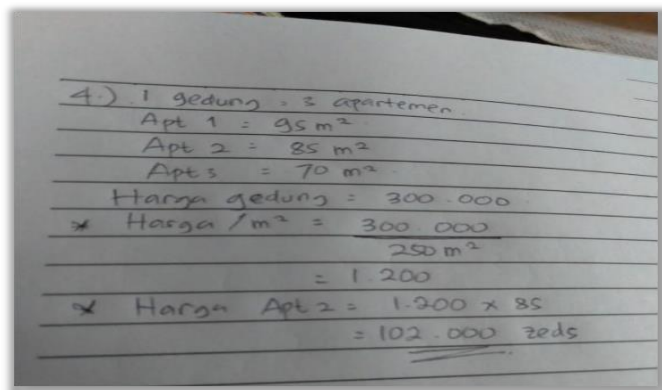 4.) 1 gedung = 3 apartemen.
Apt 1 = 95 m²
Apt 2 = 85 m²
Apt 3 = 70 m²
Harga gedung = 300.000
* Harga / m² = 300.000
250 m²
= 1.200
* Harga Apt 2 = 1.200 x 85
= 102.000 zeds